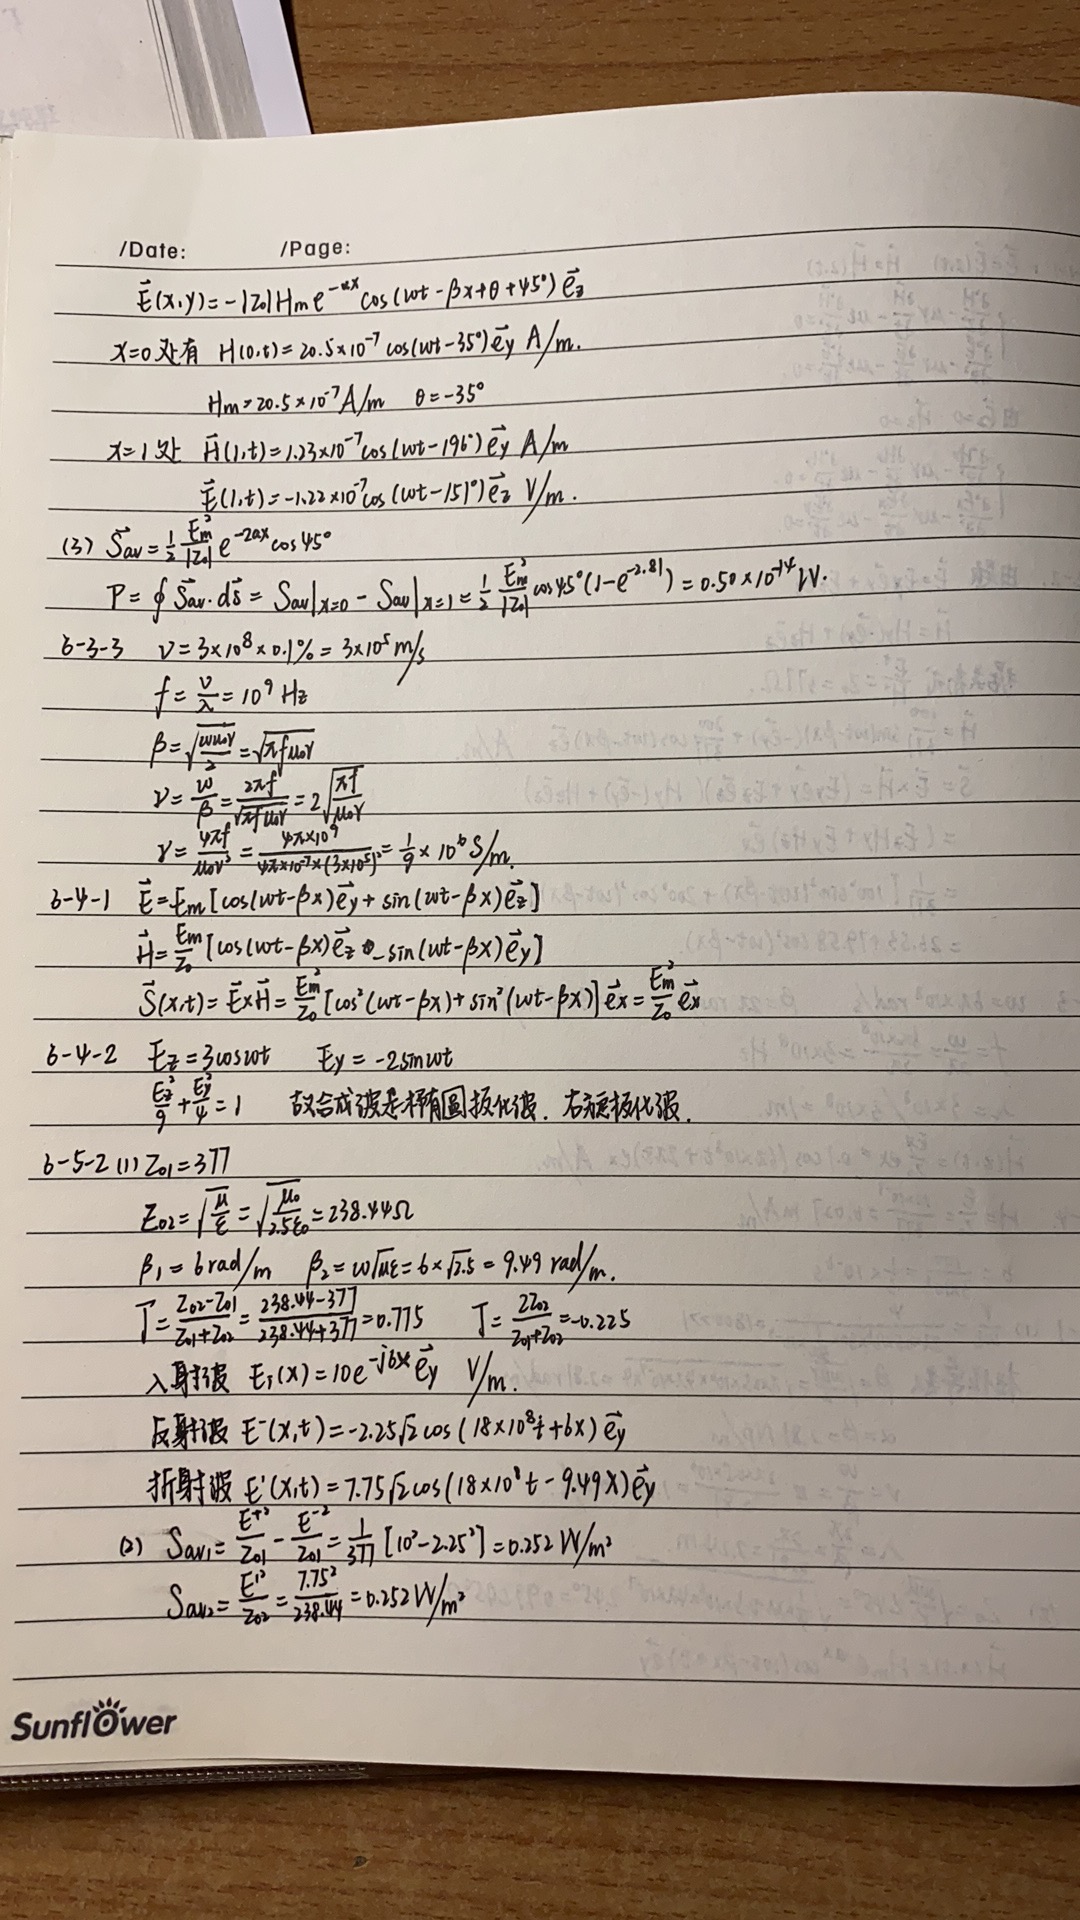 /Date: /Page:
E⃗(x,y)=-|Z₀|Hₘe^(-αx)cos(ωt-βx+θ+45°)e⃗z
x=0处有 H(0,t)=20.5×10⁻⁷cos(ωt-35°)e⃗y A/m.
Hm=20.5×10⁻⁷A/m θ=-35°
x=1处 H⃗(1,t)=1.23×10⁻⁷cos(ωt-196°)e⃗y A/m
E⃗(1,t)=-1.22×10⁻⁷cos(ωt-151°)e⃗z V/m.
(3) S⃗av=½ Em²/|Z₀| e^(-2αx)cos45°
P=∮S⃗av·ds⃗=Sav|x=0-Sav|x=1=½ Em²/|Z₀| cos45°(1-e^(-2.81))=0.50×10⁻¹⁴W.
6-3-3 v=3×10⁸×0.1%=3×10⁵m/s
f=v/λ=10⁹Hz
β=√(ωμ₀γ/2)=√(πfμ₀γ)
v=ω/β=2πf/√(πfμ₀γ)=2√(πf/μ₀γ)
γ=4πf/μ₀v²=4π×10⁹/(4π×10⁻⁷×(3×10⁵)²)=1/9×10⁶S/m.
6-4-1 E⃗=Em[cos(ωt-βx)e⃗y+sin(ωt-βx)e⃗z]
H⃗=Em/Z₀[cos(ωt-βx)e⃗z-sin(ωt-βx)e⃗y]
S⃗(x,t)=E⃗×H⃗=Em²/Z₀[cos²(ωt-βx)+sin²(ωt-βx)]e⃗x=Em²/Z₀ e⃗x
6-4-2 Ez=3cosωt Ey=-2sinωt
Ez²/9+Ey²/4=1 故合成波是椭圆极化波.右旋极化波.
6-5-2(1)Z₀₁=377
Z₀₂=√(μ/ε)=√(μ₀/2.5ε₀)=238.44Ω
β₁=6rad/m β₂=ω√(με)=6×√2.5=9.49rad/m.
T=(Z₀₂-Z₀₁)/(Z₀₁+Z₀₂)=(238.44-377)/(238.44+377)=0.775 T=2Z₀₂/(Z₀₁+Z₀₂)=-0.225
入射波 E₁(x)=10e^(-j6x)e⃗y V/m.
反射波 E⁻(x,t)=-2.25√2cos(18×10⁸t+6x)e⃗y
折射波 E'(x,t)=7.75√2cos(18×10⁸t-9.49x)e⃗y
(2) Sav₁=E⁺²/Z₀₁-E⁻²/Z₀₁=1/377[10²-2.25²]=0.252W/m²
Sav₂=E'²/Z₀₂=7.75²/238.44=0.252W/m²
Sunflower